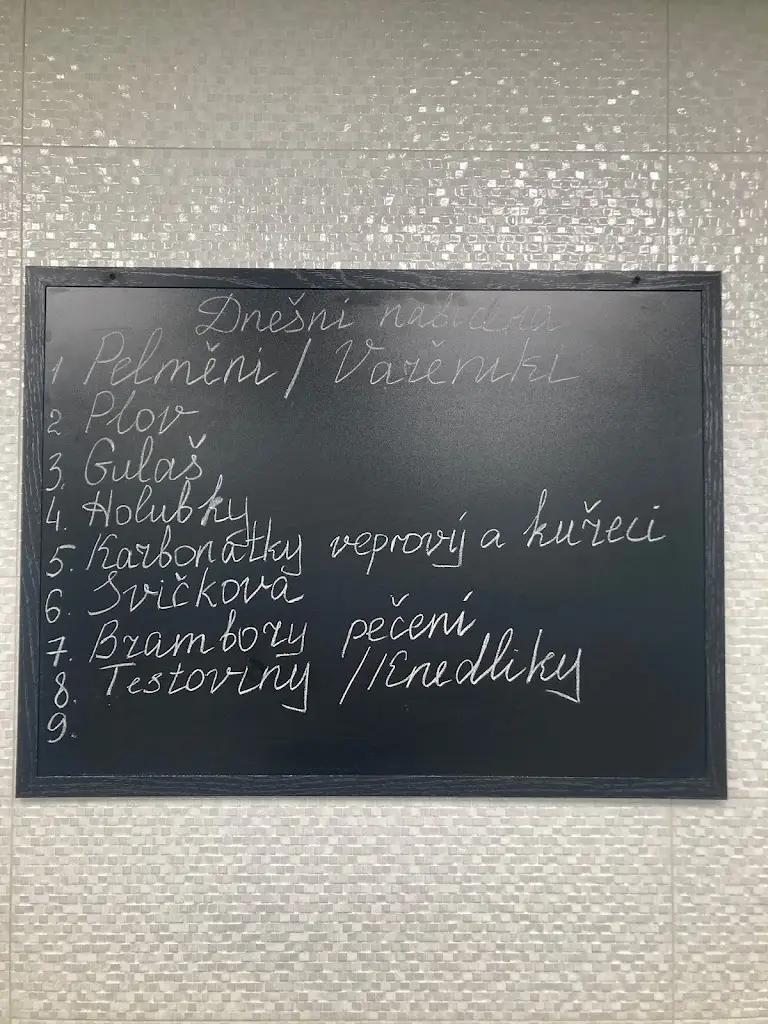 Dnešni nabidka
1 Pelměni / Varěniki
2 Plov
3. Gulaš
4. Holubky
5. Karbonátky veprový a kuřeci
6. Svičkova
7. Brambory pečení
8. Testoviny // Knedliky
9.